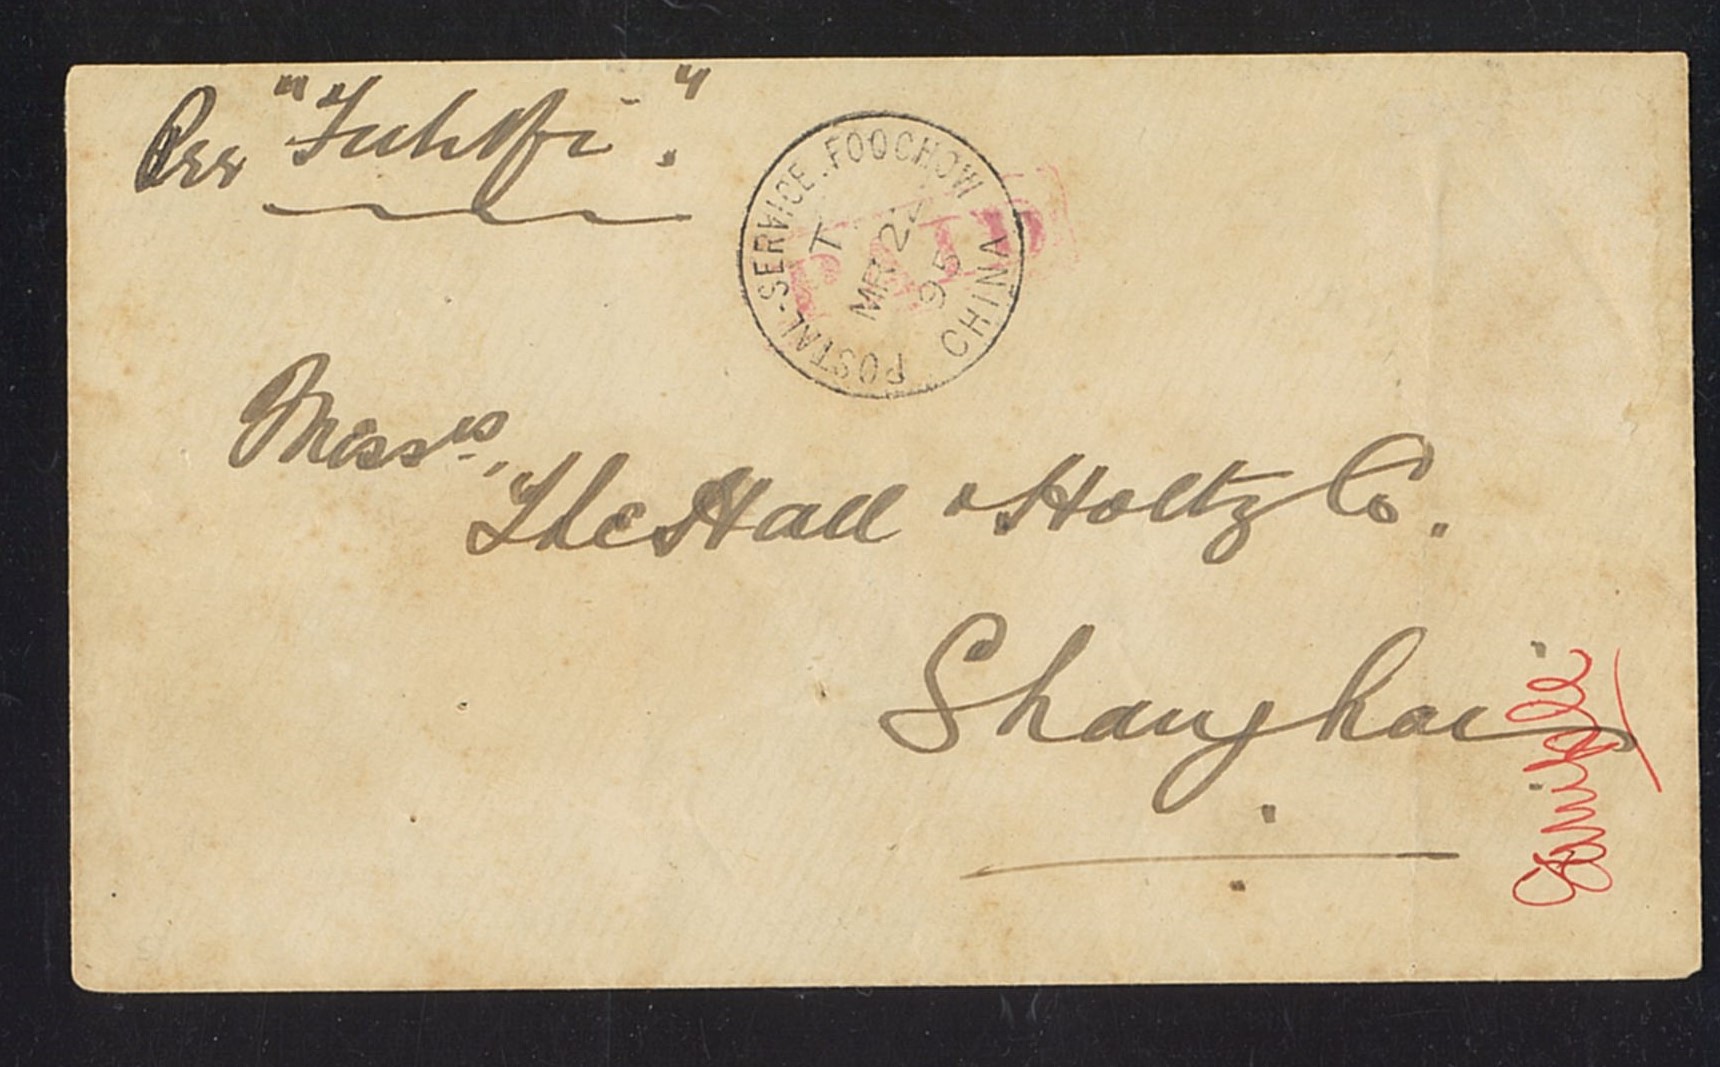 Per "Fuhpi."
POSTAL-SERVICE. FOOCHOW CHINA
T
MR 22
95
PAID
Miss^rs,
The Hall & Holtz Co.
Shanghai